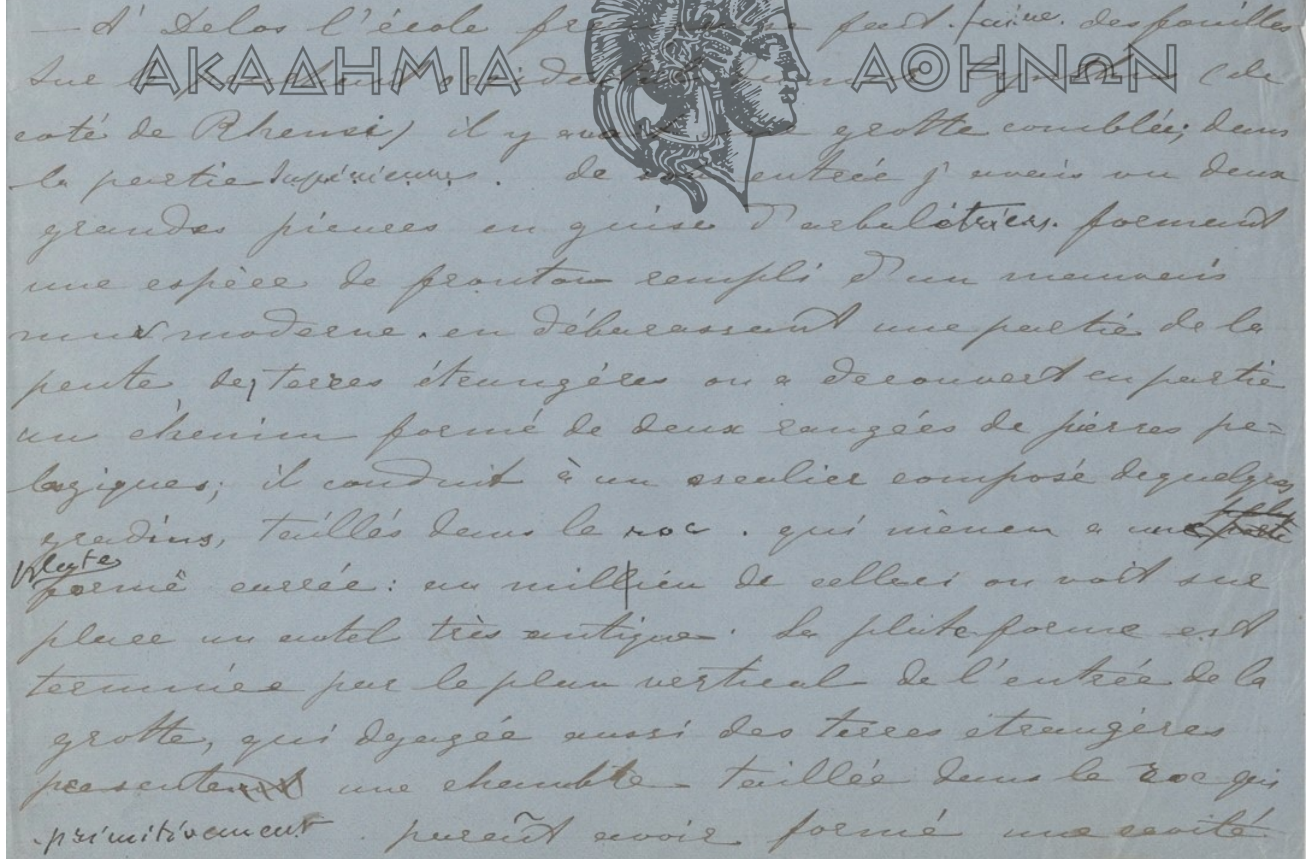 — A' Delos l'école fait faire des fouilles
ΑΚΑΔΗΜΙΑ ΑΘΗΝΩΝ
sur le (de
coté de Rhensi) il y grotte comblée; dans
la partie supérieures. de entrée j'avais vu deux
grandes pierres en guise d'arbalétriers. formant
une espèce de fronton rempli d'un mauvais
mur moderne. en débarassant une partie de la
pente, des terres étrangéres on a decouvert en partie
un chemin formé de deux rangées de pierres pe=
lasgiques; il conduit à un escalier composé de quelques
gradins, taillés dans le roc. qui mènen a une
plate formé carrée: au millieu de celleci on voit sur
place un autel très antique. La plate forme est
terminée par le plan vertical de l'entrée de la
grotte, qui dgagée aussi des terres etrangères
presente une chambre taillée dans le roc qui
primitivement parait avoir formé une cavité